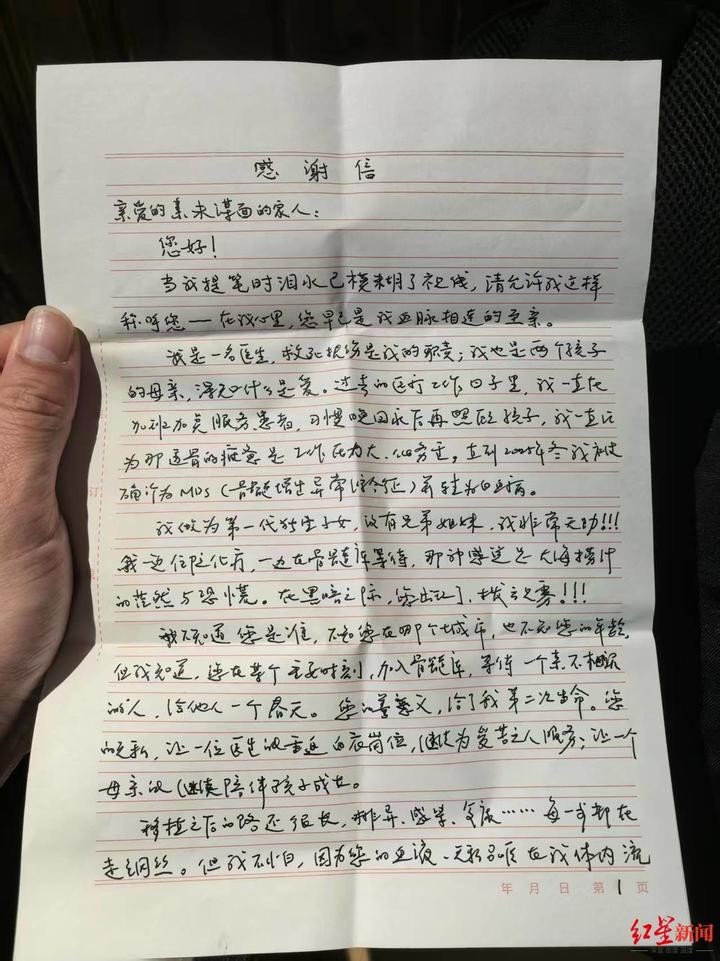 感谢信
亲爱的素未谋面的家人：
您好！
当我提笔时泪水已模糊了视线，请允许我这样
称呼您——在我心里，您早已是我血脉相连的至亲。
我是一名医生，救死扶伤是我的职责；我也是两个孩子
的母亲，深知什么是爱。过去的医疗工作日子里，我一直在
加班加点服务患者，习惯晚回家后再照顾孩子，我一直以
为那透骨的疲惫是工作压力大、心务重。直到2025年冬我被
确诊为MDS（骨髓增生异常综合征）前转为白血病。
我做为第一代独生子女，没有兄弟姐妹，我非常无助!!!
我一边住院化疗，一边在骨髓库等待，那种感觉是大海捞针
的茫然与恐慌。在黑暗之际，您出现了，救立之勇!!!
我不知道您是谁，不知您在哪个城市，也不知您的年龄，
但我知道，您在某个重要时刻，加入骨髓库，等待一个素不相识
的人，给他人一个春天。您的善意义，给了我第二次生命。您
的无私，让一位医生能重返白衣岗位，继续为爱苦之人服务；让一个
母亲能继续陪伴孩子成长。
移植之后的路还很长，排异、感染、复发……每一步都在
走钢丝。但我不怕，因为您的血液、无私品质在我体内流
订
线
年 月 日 第 1 页
红星新闻